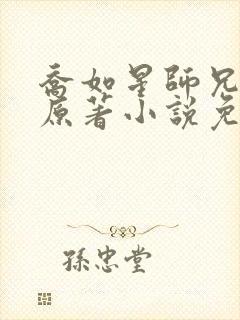 喬如星師兄
原著小說免
孫忠堂